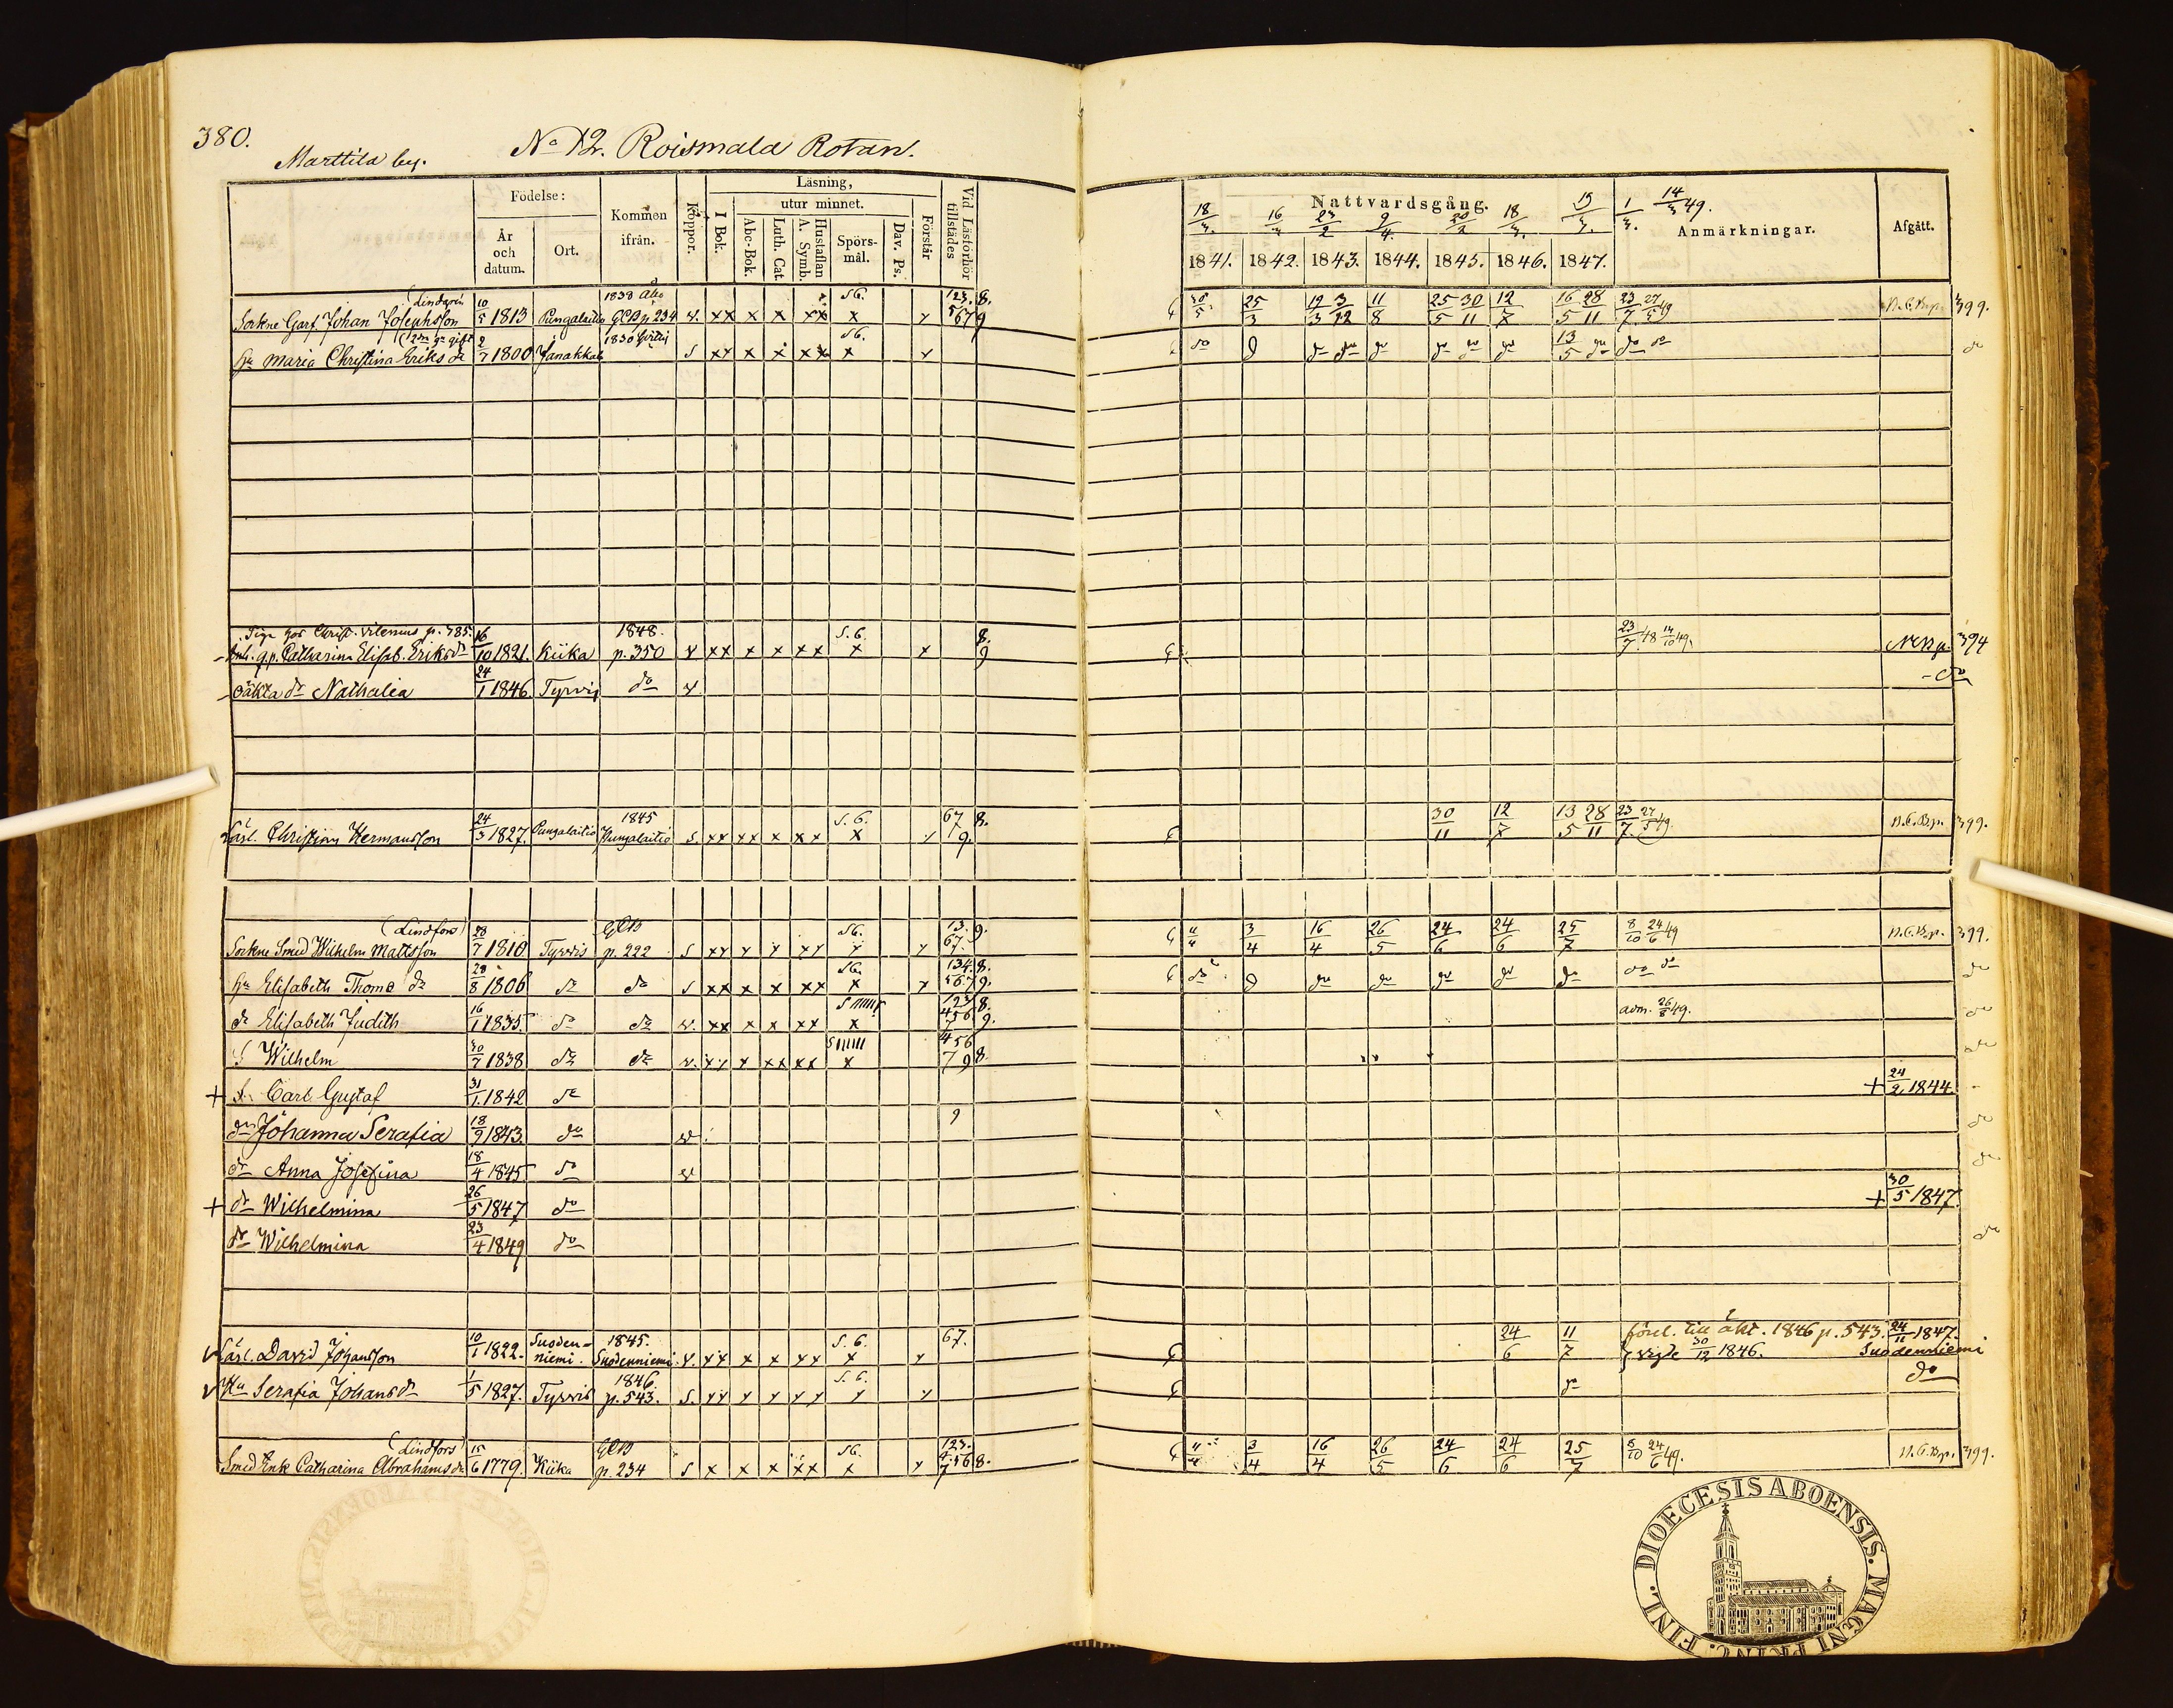 380.
Marttila by. No 12. Roismala Rotan.
Födelse: Kommen ifrån. Koppor. Läsning, Vid Läsförhör tillstädes
År och datum. Ort. I Bok. utur minnet. Förstår
Abc-Bok. Luth. Cat. Hustaflan A. Symb. Spörsmål. Dav. Ps.
Nattvardsgång. Anmärkningar. Afgått.
18/3. 16/3 23/2 9/4. 20/2 18/3. 1/3. 14/3 49.
1841. 1842. 1843. 1844. 1845. 1846. 1847.
(Lindgren 1838 Åbo S6. 123. 8.
Sockne Garf. Johan Josephsson 10/5 1813 Pungalaitio GCB p. 234 v. xx x x xx x x 567 9 25/3 19/3 3/12 11/8 25/5 30/11 12/7 16/5 28/11 23/7 27/5 49 N.C.B.p. 399.
S6.
Hu Maria Christina Eriks dr 2/7 1800 Janakkala S xx x x xx x x do do do do do do do 13/5 do do do do
Piga hos Christ. Vilenius p. 385. 1848. S.6. 8.
Inh. q.p. Catharina Elisab. Eriksdr 16/10 1821. Kiika p. 350 v xx x x xx x x 9 23/7 48 14/10 49. NCB p. 394
oäkta dr Nathalia 24/1 1846 Tyrvis do v. do
1845 S.6. 67 8.
Karl. Christian Hermansson 24/3 1827. Pungalaitio Pungalaitio S. xx xx x xx x x 9. 30/11 12/7 13/5 28/11 23/7. 27/5 49. N.C.B.p. 399.
(Lindfors) GCB S6. 13. 9.
Sockne Smed Wilhelm Mattsson 28/7 1810 Tyrvis p. 222 S xx x x xx x x 67. 3/4 16/4 26/5 24/6 24/6 25/7 8/10 24/6 49 N.C.B.p. 399.
S6. 134. 8.
Hu Elisabeth Thoms dr 28/8 1806 do do S xx x x xx x x 567 9. do do do do do do do do do
dr Elisabeth Judith 16/1 1835. do do v. xx x x xx x 123 456 7 8. 9. adm. 26/8 49. do
S Wilhelm 30/7 1838 do do v. xx x xx xx x 456 79 8. do
+ S. Carl Gustaf 31/1 1842 do + 24/2 1844.
dr Johanna Serafia 18/9 1843 do v 9 do
dr Anna Josefina 18/4 1845 do v do
+ dr Wilhelmina 26/5 1847 do + 30/5 1847.
dr Wilhelmina 23/4 1849 do do
Karl. David Johansson 10/1 1822. Suodenniemi. 1845. Suodenniemi v. xx x x xx x x S.6. 67. 24/6 11/7 förel. till äkt. 1846 p. 543. vigde 30/12 1846. 24/11 1847. Suodenniemi
Hu Serafia Johans dr 1/5 1827. Tyrvis 1846 p. 543. S. xx x x xx x x S.6. do do
(Lindfors) GCB S6. 123.
Smed Enk Catharina Abrahams dr 15/6 1779. Kiika p. 234 S x x x xx x x 456 7 8. 3/4 16/4 26/5 24/6 24/6 25/7 8/10 24/6 49. N.C.B.p. 399.
DIOECESIS ABOENSIS. MAGNI PRINC. FINL.